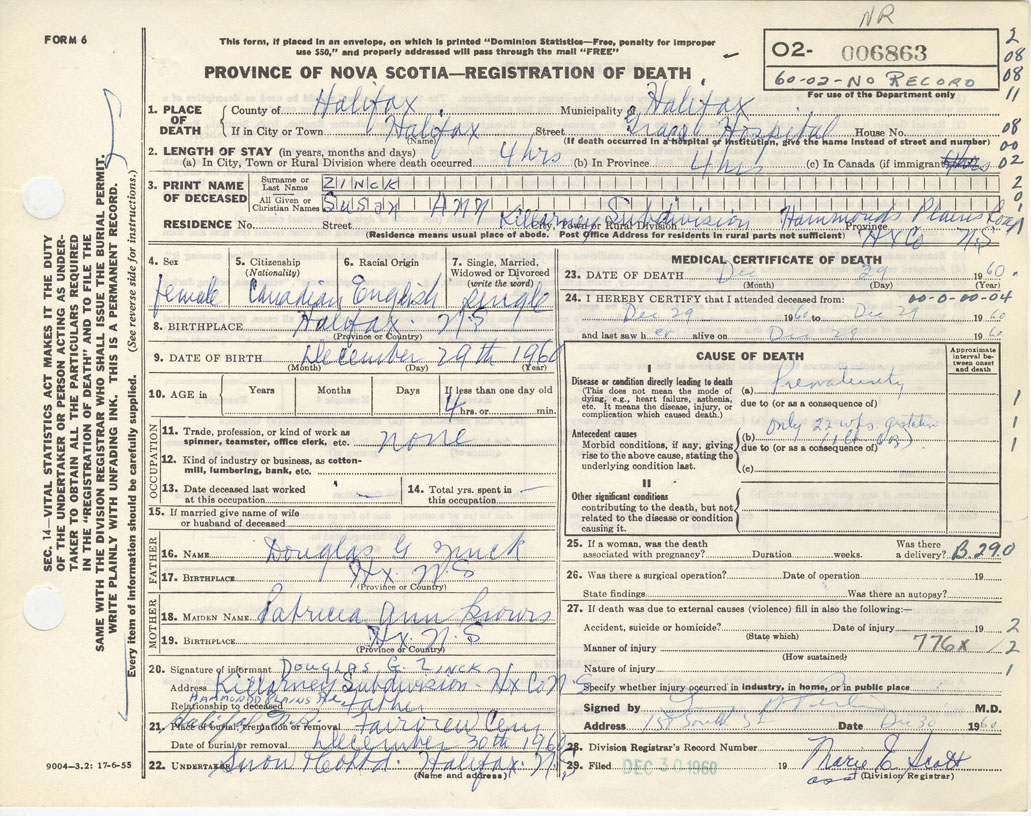 NR
FORM 6
This form, if placed in an envelope, on which is printed "Dominion Statistics—Free, penalty for improper
use $50," and properly addressed will pass through the mail "FREE"
02- 006863
60-02-No Record
For use of the Department only
PROVINCE OF NOVA SCOTIA—REGISTRATION OF DEATH
2
08
08
11
08
00
02
2
0
1
SEC. 14—VITAL STATISTICS ACT MAKES IT THE DUTY
OF THE UNDERTAKER OR PERSON ACTING AS UNDER-
TAKER TO OBTAIN ALL THE PARTICULARS REQUIRED
IN THE "REGISTRATION OF DEATH" AND TO FILE THE
SAME WITH THE DIVISION REGISTRAR WHO SHALL ISSUE THE BURIAL PERMIT.
WRITE PLAINLY WITH UNFADING INK. THIS IS A PERMANENT RECORD.
Every item of information should be carefully supplied. (See reverse side for instructions.)
1. PLACE OF DEATH County of Halifax Municipality of Halifax
If in City or Town Halifax Street Grace Hospital House No.
(Name) (If death occurred in a hospital or institution, give the name instead of street and number)
2. LENGTH OF STAY (in years, months and days)
(a) In City, Town or Rural Division where death occurred 4 hrs (b) In Province 4 hrs (c) In Canada (if immigrant) 4 hrs
3. PRINT NAME OF DECEASED Surname or Last Name ZINCK
All Given or Christian Names Susan Ann
RESIDENCE No. Street Killarney Subdivision City, Town or Rural Division Hammonds Plains Road Province
(Residence means usual place of abode. Post Office Address for residents in rural parts not sufficient) Hx Co N.S
4. Sex 5. Citizenship (Nationality) 6. Racial Origin 7. Single, Married, Widowed or Divorced (write the word)
female Canadian English single
8. BIRTHPLACE Halifax. N.S
(Province or Country)
9. DATE OF BIRTH December 29th 1960
(Month) (Day) (Year)
10. AGE in Years Months Days If less than one day old
4 hrs. or min.
OCCUPATION
11. Trade, profession, or kind of work as
spinner, teamster, office clerk, etc. none
12. Kind of industry or business, as cotton-
mill, lumbering, bank, etc.
13. Date deceased last worked
at this occupation
14. Total yrs. spent in
this occupation
15. If married give name of wife
or husband of deceased
FATHER
16. NAME Douglas G Zinck
17. BIRTHPLACE Hx. N.S
(Province or Country)
MOTHER
18. MAIDEN NAME Patricia Ann
19. BIRTHPLACE Hx. N.S
(Province or Country)
20. Signature of informant DOUGLAS G. ZINCK
Address Killarney Subdivision - Hx Co N S
HAMMONDS PLAINS Rd,
Relationship to deceased Father
Halifax N.S.
21. Place of burial, cremation or removal Fairview Cem
Date of burial or removal December 30th 1960
22. UNDERTAKER Snow & Co Ltd. Halifax. N.S
(Name and address)
9004—3.2: 17-6-55
MEDICAL CERTIFICATE OF DEATH
23. DATE OF DEATH Dec 29 1960.
(Month) (Day) (Year)
24. I HEREBY CERTIFY that I attended deceased from: 00-0-00-04
Dec 29 1960 to Dec 29 1960
and last saw her alive on Dec 29 1960
CAUSE OF DEATH
Approximate interval between onset and death
I
Disease or condition directly leading to death
(This does not mean the mode of
dying, e.g., heart failure, asthenia,
etc. It means the disease, injury, or
complication which caused death.)
(a) Prematurity
due to (or as a consequence of)
Antecedent causes
Morbid conditions, if any, giving
rise to the above cause, stating the
underlying condition last.
(b) Only 22 wks. gestation
due to (or as a consequence of)
(c)
1
1
1
II
Other significant conditions
contributing to the death, but not
related to the disease or condition
causing it.
25. If a woman, was the death
associated with pregnancy? Duration weeks. Was there a delivery? B.290
26. Was there a surgical operation? Date of operation 19
State findings Was there an autopsy?
27. If death was due to external causes (violence) fill in also the following:—
Accident, suicide or homicide? Date of injury 19 2
(State which)
Manner of injury 776X 2
(How sustained)
Nature of injury 1
Specify whether injury occurred in industry, in home, or in public place
Signed by M.D.
Address South St Date Dec 30 1960
28. Division Registrar's Record Number
29. Filed DEC 30 1960 19 Marie E. Scott
(Division Registrar)